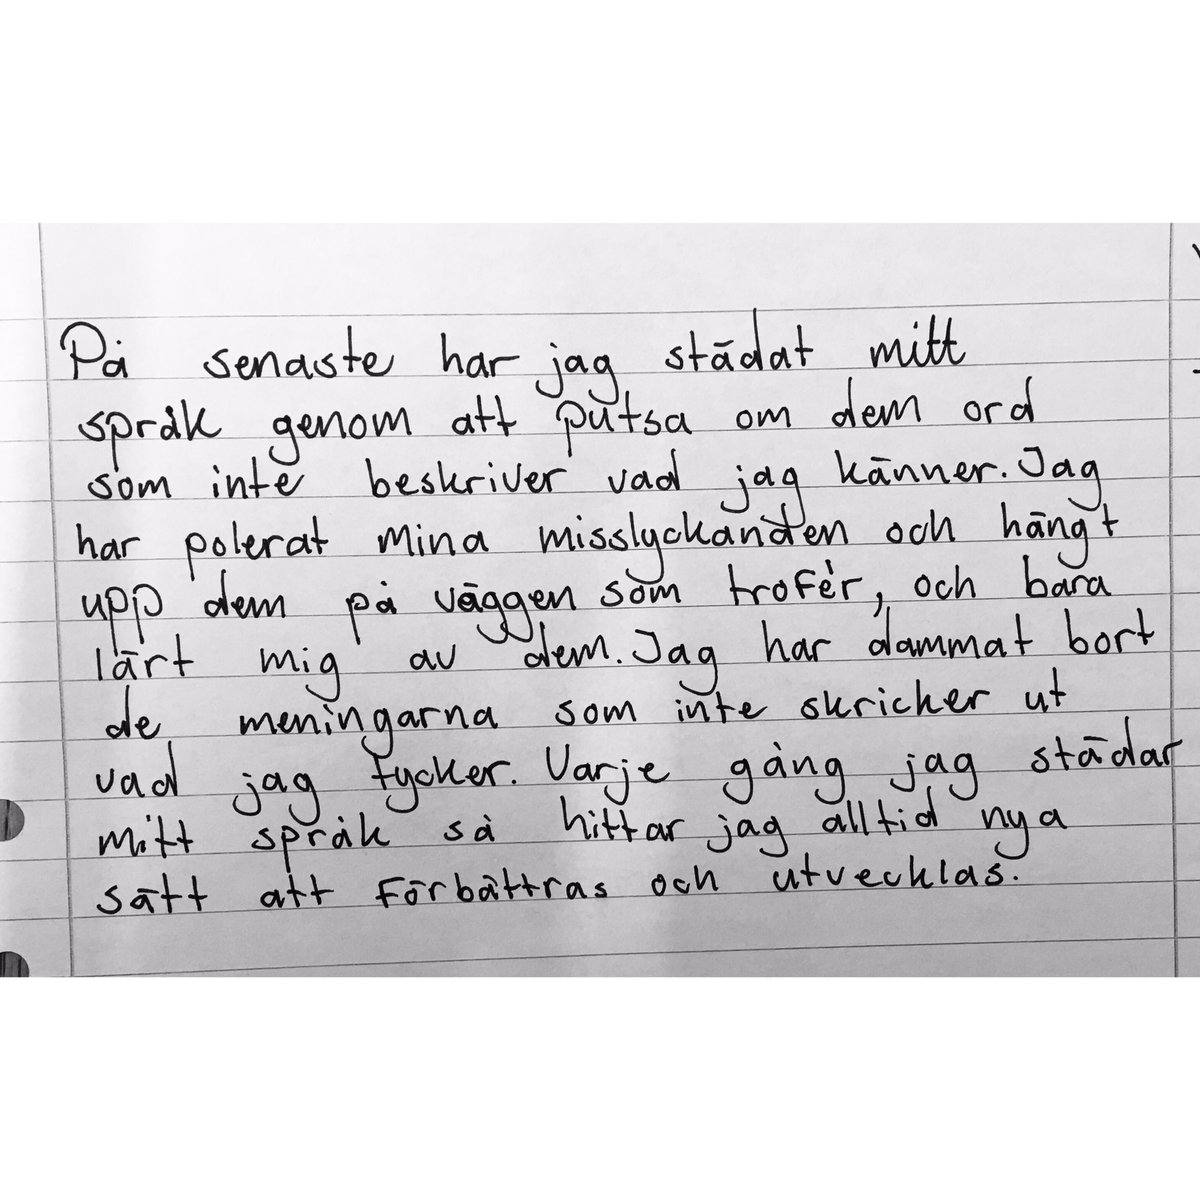 På senaste har jag städat mitt
språk genom att putsa om dem ord
som inte beskriver vad jag känner. Jag
har polerat mina misslyckanden och hängt
upp dem på väggen som trofér, och bara
lärt mig av dem. Jag har dammat bort
de meningarna som inte skricker ut
vad jag tycker. Varje gång jag städar
mitt språk så hittar jag alltid nya
sätt att förbättras och utvecklas.